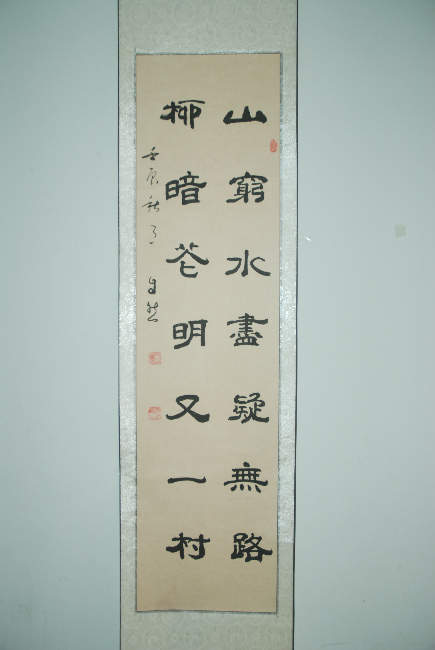 山窮水盡疑無路
柳暗花明又一村
壬辰秋月 自然